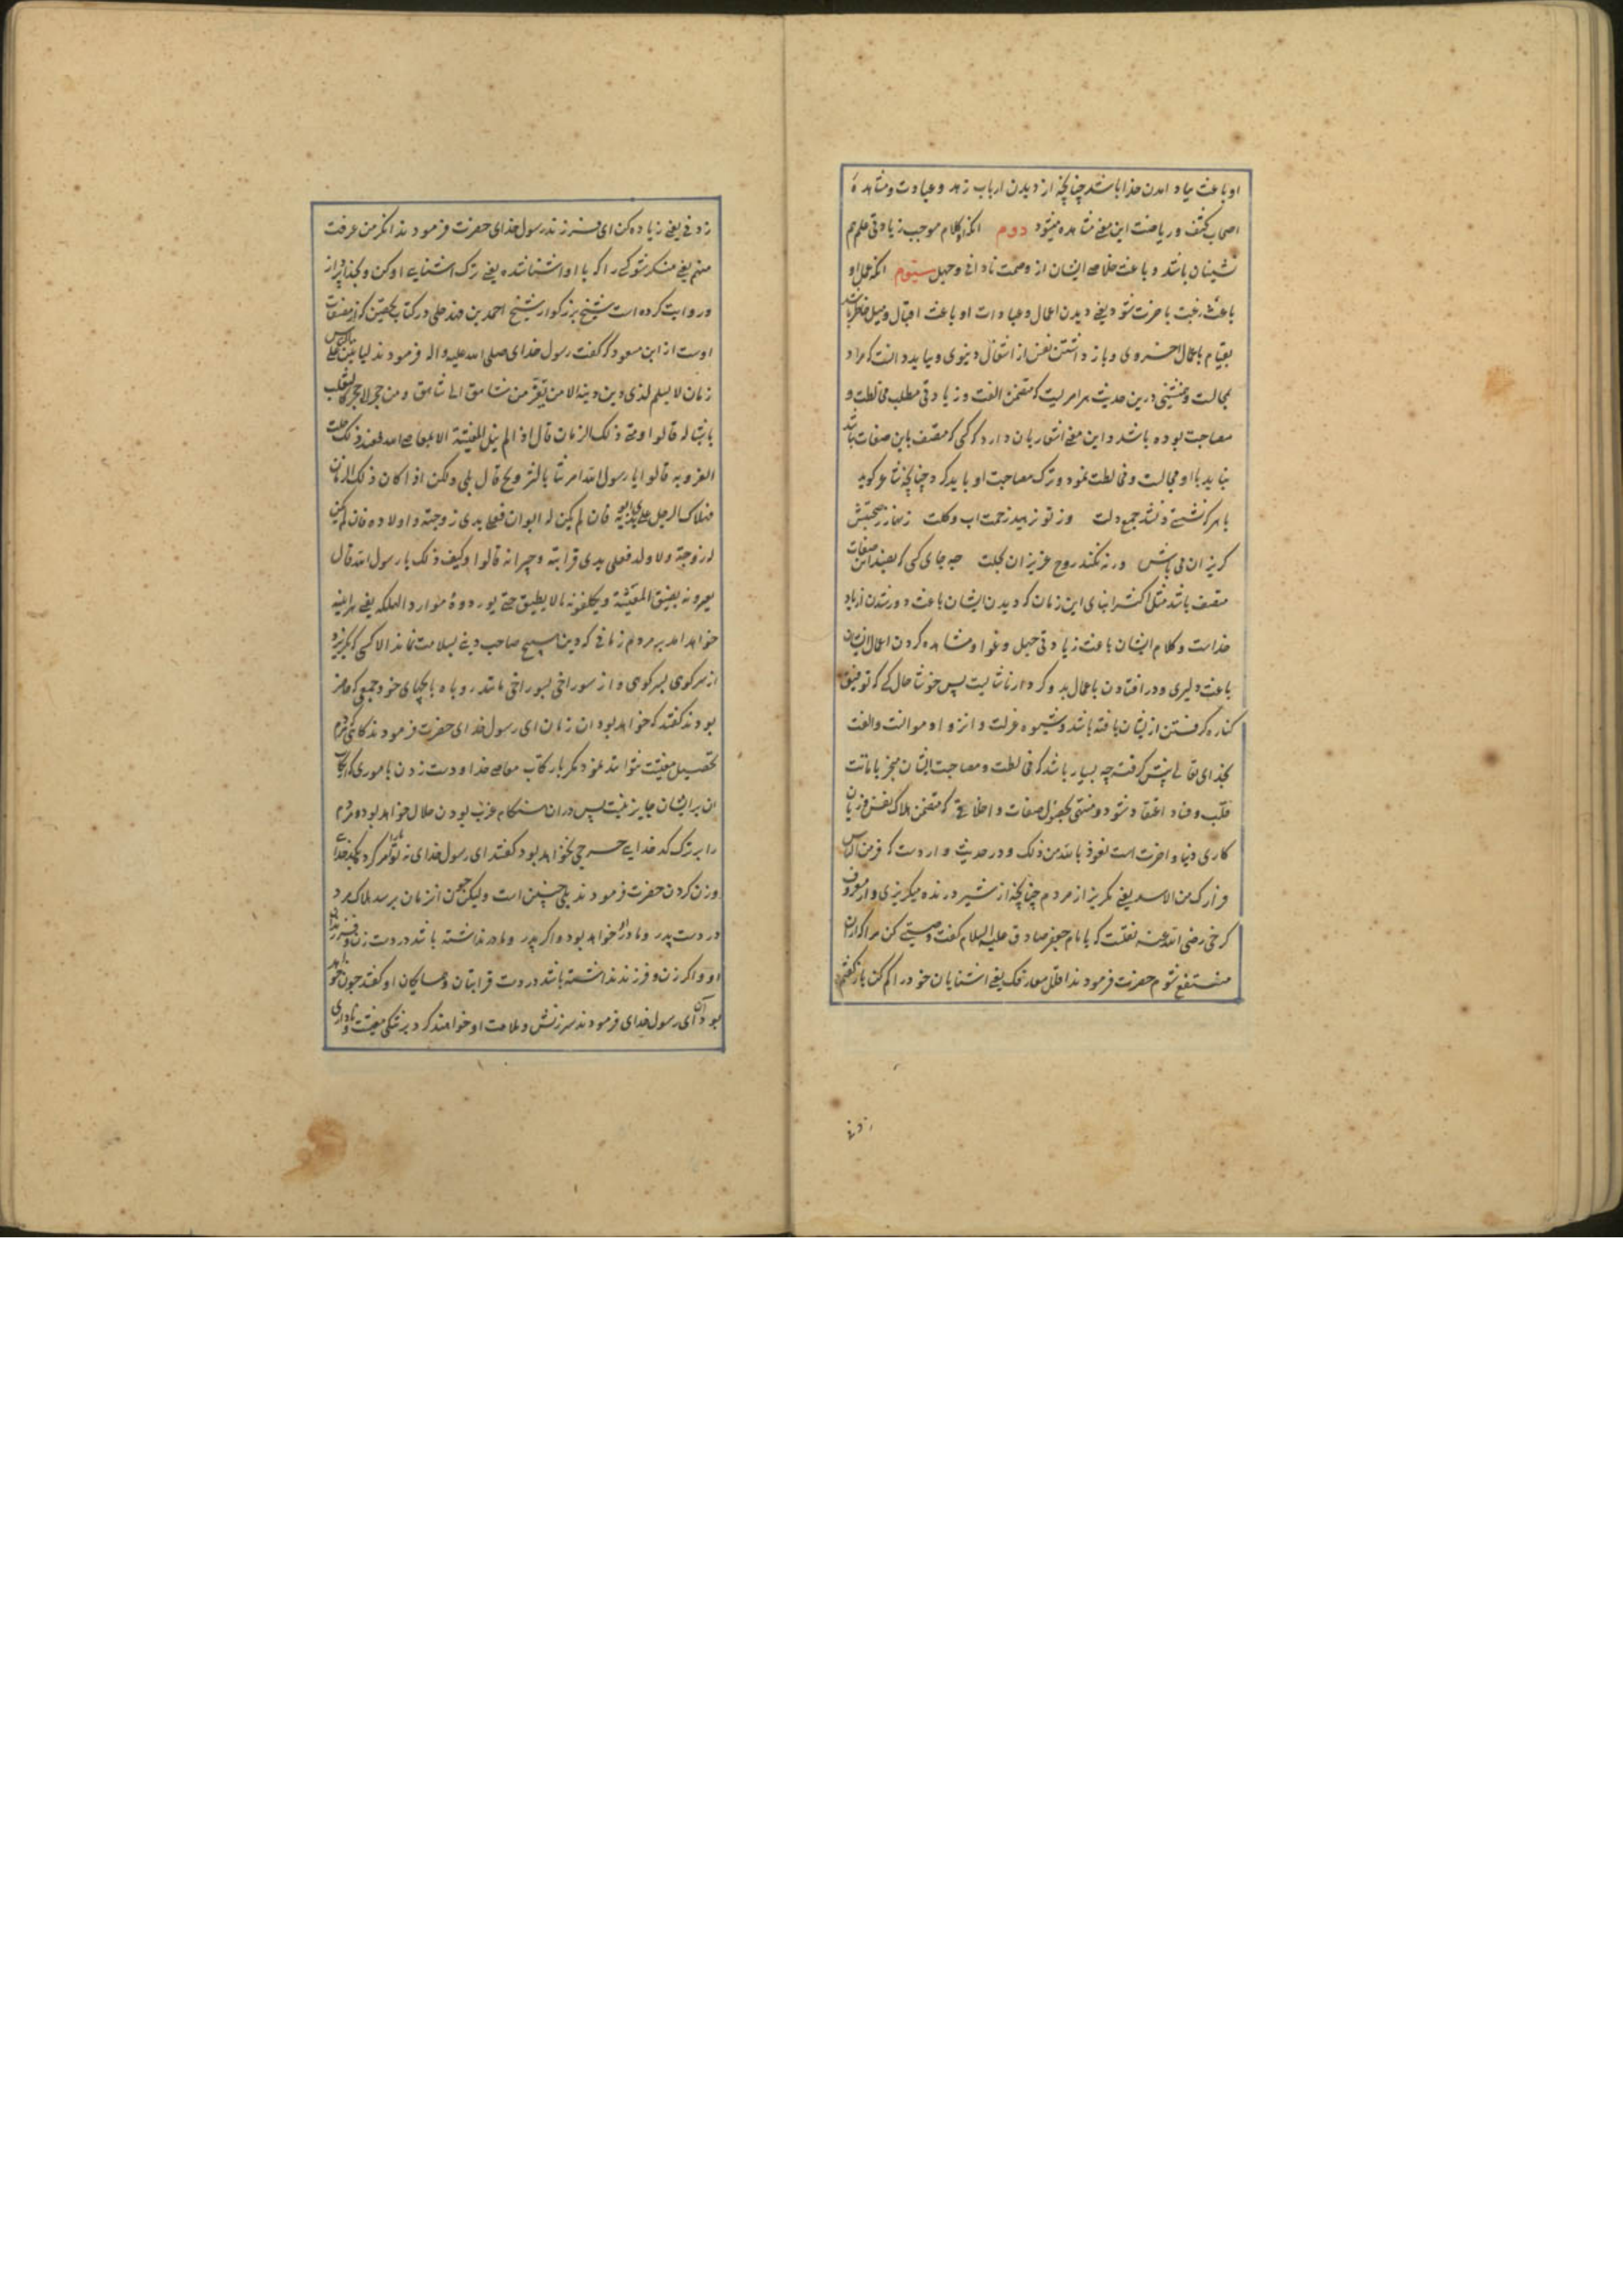 او باعث بیاد امدن خدا باشد چنانچه از دیدن ارباب زهد و عبادت و مشاهدهٔ
اصحاب کشف و ریاضت این معنی مشاهده میشود دوم انکه کلام موجب زیادتی علم هم
نشینان باشد و باعث خلاصی ایشان از وصمت نادانی و جهل سیّوم انکه عمل او
باعث رغبت باخرت شود یعنی دیدن اعمال و عبادات او باعث اقبال و میل خاطر باشد
بقیام باعمال اخروی و باز داشتن نفس از اشغال دنیوی و بباید دانست که مراد
مجالست و همنشینی درین حدیث هر امریست که متضمن الفت و زیادتی مطلب مخالطت و
مصاحبت بوده باشد و این معنی اشعار بان دارد که کسی که متصف باین صفات باشد
نباید با او مجالست و مخالطت نمود و ترک مصاحبت او باید کرد چنانچه شاعر کوید
با هر که نشستی و نشد جمع دلت وز تو نرمید زحمت اب و کلت زنهار ز صحبتش
کریزان می باش ورنه نکند روح عزیزان بحلت چه جای کسی که بضد این صفات
متصف باشد مثل اکثر ابنای این زمان که دیدن ایشان باعث دور شدن از یاد
خداست و کلام ایشان باعث زیادتی جهل و غوا و مشاهده کردن اعمال ایشان
باعث دلیری و در افتادن باعمال بد و کردار ناشایست پس خوشا حال کسی که توفیق
کناره کرفتن از ایشان یافته باشد و شیوه عزلت و انزوا و موانست و الفت
بخدای تعالی پیش کرفته چه بسیار باشد که مخالطت و مصاحبت ایشان منجر باماتت
قلب و فساد اعتقاد شود و منتهی بحصول صفات و اخلاقی که متضمن هلاک نفس و زیان
کاری دنیا و اخرت است نعوذ بالله من ذلک و در حدیث وارد است که فر من الناس
فرارک من الاسد یعنی بکریز از مردم چنانچه از شیر درنده میکریزی و از معروف
کرخی رضی الله عنه نقلست که با امام جعفر صادق علیه السلام کفت وصیتی کن مرا که از ان
منتفع شوم حضرت فرمودند اقلل معارفک یعنی اشنایان خود را کم کن باز کفتم
زدنی
زدنی یعنی زیاده کن ای فرزند رسول خدای حضرت فرمودند انکر من عرفت
منهم یعنی منکر شو کسی را که با او اشنا شده یعنی ترک اشنایی او کن و بخدا پرداز
و روایت کرده است شیخ بزرکوار شیخ احمد بن فهد حلی در کتاب تحصین که از مصنفات
اوست از ابن مسعود که کفت رسول خدای صلی الله علیه واله فرمودند لیاتین علی الناس
زمان لا یسلم لذی دین دینه الا من یفر من شاهق الی شاهق و من حجر الی حجر کالثعلب
باشباله قالوا و متی ذلک الزمان قال اذا لم ینل المعیشة الا بمعاصی الله فعند ذلک حلت
العزوبه قالوا یا رسول الله امرتنا بالتزویج قال بلی ولکن اذا کان ذلک الزمان
فهلاک الرجل علی یدی ابویه فان لم یکن له ابوان فعلی یدی زوجته و اولاده فان لم یکن
له زوجة ولا ولد فعلی یدی قرابته و جیرانه قالوا و کیف ذلک یا رسول الله قال
یعیرونه بضیق المعیشة و یکلفونه ما لا یطیق حتی یوردوه موارد الهلکه یعنی هراینه
خواهد امد بر مردم زمانی که دین هیچ صاحب دینی بسلامت نماند الا کسی که بکریزد
از سر کوهی بسر کوهی و از سوراخی بسوراخی مانند روباه با بچهای خود جمعی که حاضر
بودند کفتند که خواهد بود ان زمان ای رسول خدای حضرت فرمودند کاهی که مردم
تحصیل معیشت نتوانند نمود مکر بارتکاب معاصی خدا و دست زدن باموری که ارتکاب
ان برایشان جایز نیست پس دران هنکام عزب بودن حلال خواهد بود و مردم
را بر ترک کدخدایی حرجی نخواهد بود کفتند ای رسول خدای نه تو ما را امر کرد بکدخدایی
و زن کردن حضرت فرمودند بلی چنین است ولیکن چون ان زمان برسد هلاک مرد
در دست پدر و مادر او خواهد بود و اکر پدر و مادر نداشته باشد در دست زن و فرزند
او و اکر زن و فرزند نداشته باشد در دست قرابتان و همسایکان او کفتند چون خواهد
بود ان ای رسول خدای فرمودند سرزنش و ملامت او خواهند کرد بر تنکی معیشت و ناداری